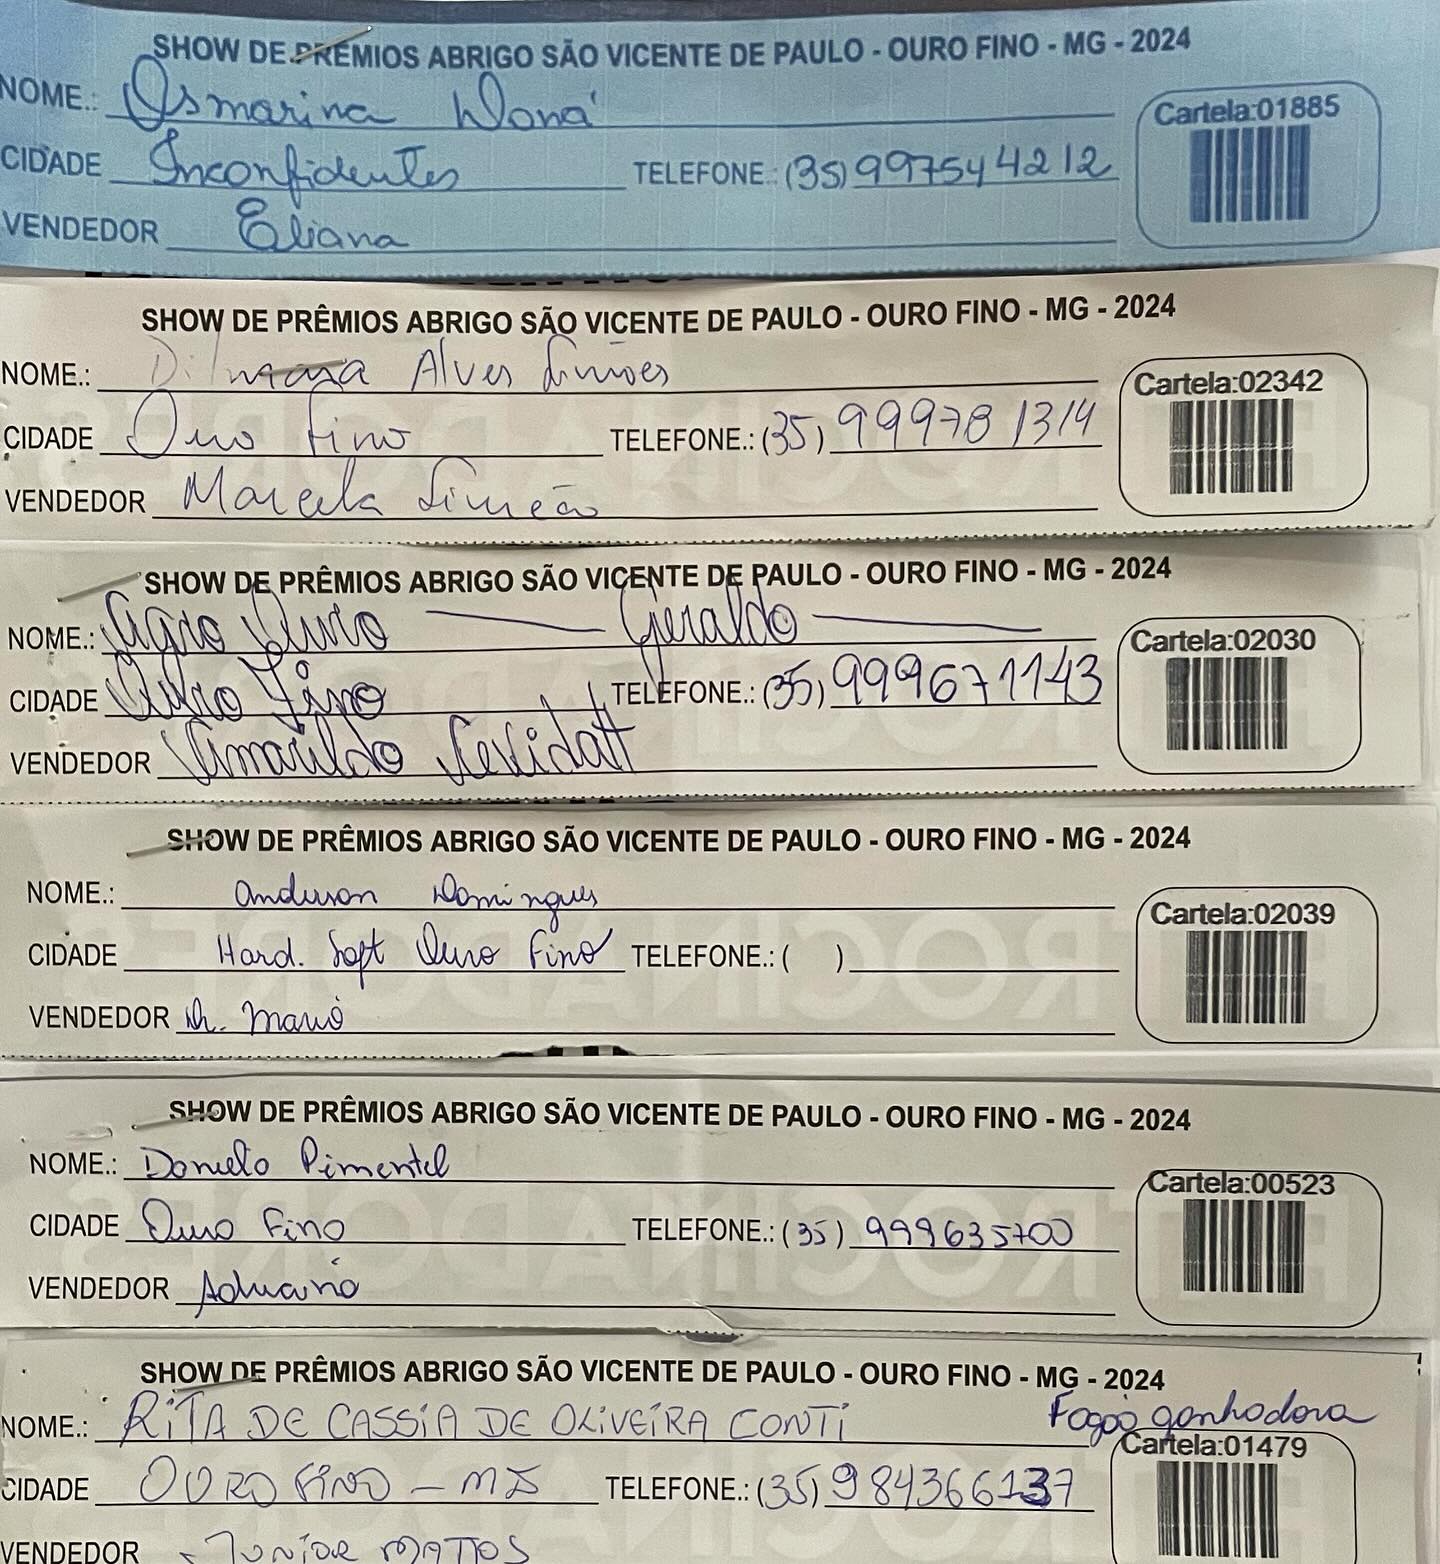 SHOW DE PRÊMIOS ABRIGO SÃO VICENTE DE PAULO - OURO FINO - MG - 2024
NOME.: Osmarina Doná
Cartela:01885
CIDADE Inconfidentes TELEFONE.: (35) 997544212
VENDEDOR Eliana
SHOW DE PRÊMIOS ABRIGO SÃO VICENTE DE PAULO - OURO FINO - MG - 2024
NOME.: Dilmara Alves Simões
Cartela:02342
CIDADE Ouro Fino TELEFONE.: (35) 999781314
VENDEDOR Marcela Simeão
SHOW DE PRÊMIOS ABRIGO SÃO VICENTE DE PAULO - OURO FINO - MG - 2024
NOME.: Agro Ouro — Geraldo —
Cartela:02030
CIDADE Ouro Fino TELEFONE.: (35) 999671143
VENDEDOR Amarildo
SHOW DE PRÊMIOS ABRIGO SÃO VICENTE DE PAULO - OURO FINO - MG - 2024
NOME.: Anderson Domingues
Cartela:02039
CIDADE Hard. Soft Ouro Fino TELEFONE.: ( )
VENDEDOR Dr. Mario
SHOW DE PRÊMIOS ABRIGO SÃO VICENTE DE PAULO - OURO FINO - MG - 2024
NOME.: Donielo Pimentel
Cartela:00523
CIDADE Ouro Fino TELEFONE.: (35) 999635700
VENDEDOR Adriano
SHOW DE PRÊMIOS ABRIGO SÃO VICENTE DE PAULO - OURO FINO - MG - 2024
NOME.: RITA DE CASSIA DE OLIVEIRA CONTI Fogão ganhadora
Cartela:01479
CIDADE OURO FINO - MG TELEFONE.: (35) 984366137
VENDEDOR JUNIOR MATTOS